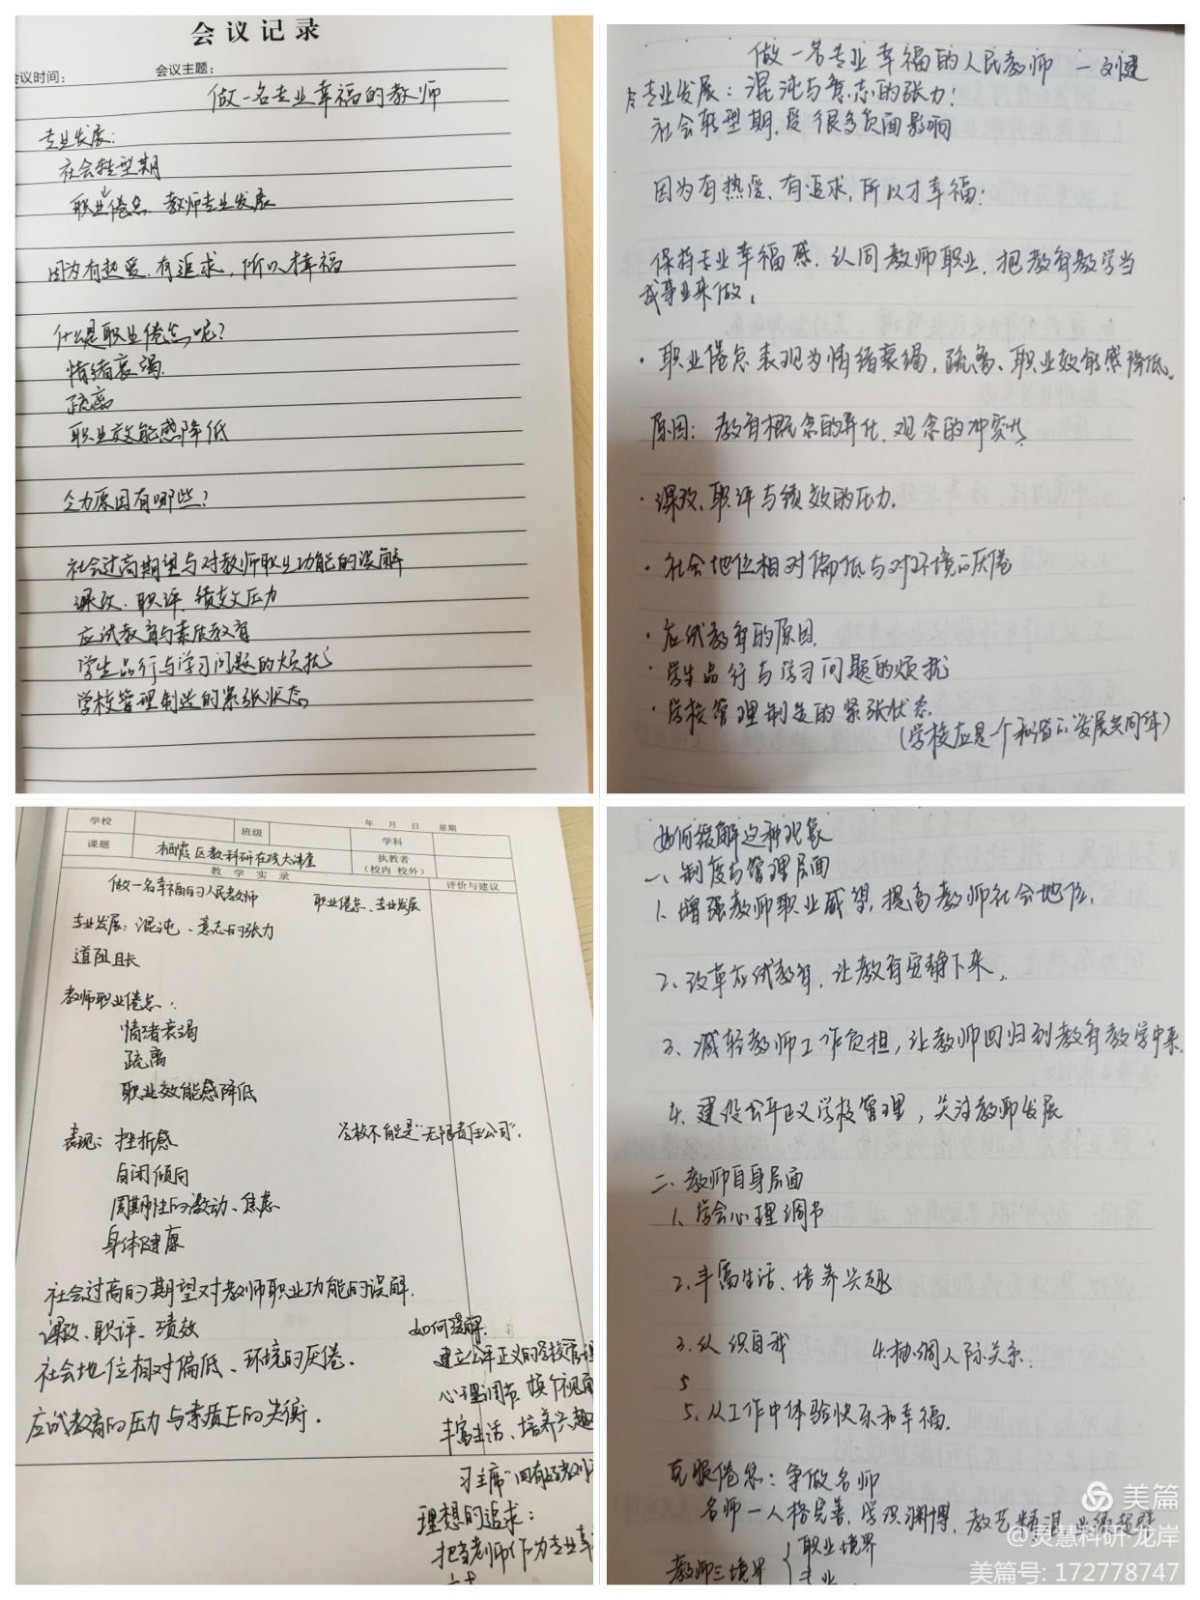 会议记录
会议时间：
会议主题：
做一名专业幸福的教师
专业发展：
社会转型期
职业倦怠 教师专业发展
因为有热爱、有追求，所以才幸福
什么是职业倦怠呢？
情绪衰竭
疏离
职业效能感降低
压力原因有哪些？
社会过高期望与对教师职业功能的误解
课改、职评、绩效压力
应试教育与素质教育
学生品行与学习问题的烦扰
学校管理制造的紧张状态
做一名专业幸福的人民教师 —刘建
专业发展：混沌与意志的张力！
社会转型期，受很多负面影响
因为有热爱，有追求，所以才幸福！
保持专业幸福感，认同教师职业，把教育教学当
成事业来做。
·职业倦怠表现为情绪衰竭，疏离、职业效能感降低。
原因：教育概念的异化、观念的冲突
·课改、职评与绩效的压力.
·社会地位相对偏低与对环境的厌倦
·应试教育的原因
·学生品行与学习问题的烦扰
·学校管理制造的紧张状态
（学校应是一个和谐的发展共同体）
学校 班级 年 月 日 星期
课题 栖霞区教科研在线大讲堂 学科 执教者（校内 校外）
教学实录 评价与建议
做一名幸福的人民教师 职业倦怠、专业发展
专业发展：混沌、意志的张力
道阻且长
教师职业倦怠：
情绪衰竭
疏离
职业效能感降低
表现：挫折感 学校不能是“无限责任公司”.
自闭倾向
周期性的激动、焦虑
身体健康
社会过高的期望对教师职业功能的误解.
课改、职评、绩效
社会地位相对偏低、环境的厌倦.
应试教育的压力与素质的失衡.
如何缓解：
建立公平正义的学校管理
心理调节 换个视角
丰富生活、培养兴趣
习主席“四有好教师”
理想的追求：
把当老师作为专业
如何缓解这种现象
一、制度与管理层面
1. 增强教师职业威望，提高教师社会地位.
2. 改革应试教育，让教育安静下来。
3. 减轻教师工作负担，让教师回归到教育教学中来
4. 建设公平正义学校管理，关注教师发展
二、教师自身层面
1. 学会心理调节
2. 丰富生活、培养兴趣
3. 认识自我 4. 协调人际关系
5
5. 从工作中体验快乐和幸福.
克服倦怠：争做名师
名师—人格完善，学识渊博，教艺精湛
教师三境界 { 职业境界
专业
美篇
@灵慧科研龙岸
美篇号: 172778747